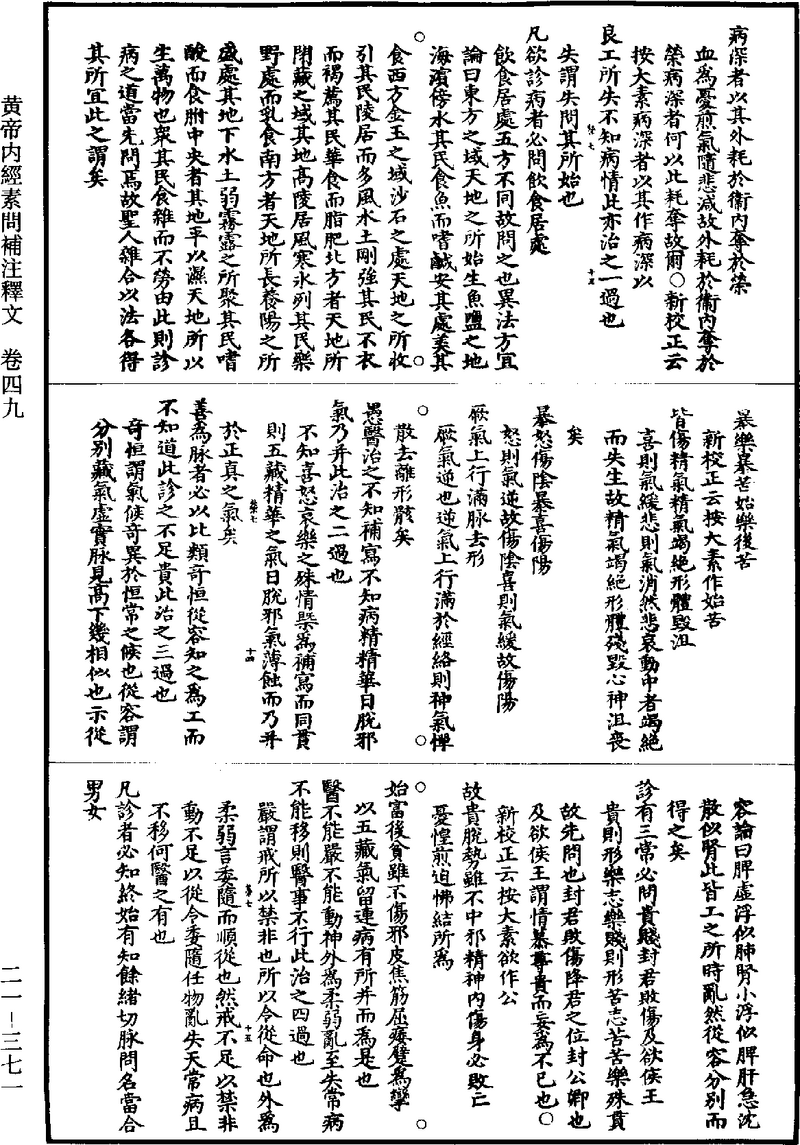 黃帝内經素問補注釋文　卷四九
二一－三七一
病深者以其外耗於衞内奪於榮
血爲憂煎氣隨悲減故外耗於衞内奪於
榮病深者何以此耗奪故爾○新校正云
按大素病深者以其作病深以
良工所失不知病情此亦治之一過也
失謂失問其所始也
凡欲診病者必問飲食居處
飲食居處五方不同故問之也異法方宜
論曰東方之域天地之所始生魚鹽之地
海濱傍水其民食魚而嗜鹹安其處美其
食西方金玉之域沙石之處天地之所收
引其民陵居而多風水土剛強其民不衣
而褐薦其民華食而脂肥北方者天地所
閉藏之域其地高陵居風寒氷列其民樂
野處而乳食南方者天地所長養陽之所
盛處其地下水土弱霧露之所聚其民嗜
酸而食胕中央者其地平以濕天地所以
生萬物也衆其民食雜而不勞由此則診
病之道當先問焉故聖人雜合以法各得
其所宜此之謂矣
暴樂暴苦始樂後苦
新校正云按大素作始苦
皆傷精氣精氣竭絶形體毀沮
喜則氣緩悲則氣消然悲哀動中者竭絶
而失生故精氣竭絶形體殘毀心神沮喪
矣
暴怒傷陰暴喜傷陽
怒則氣逆故傷陰喜則氣緩故傷陽
厥氣上行滿脉去形
厥氣逆也逆氣上行滿於經絡則神氣憚
散去離形骸矣
愚醫治之不知補寫不知病精精華日脫邪
氣乃并此治之二過也
不知喜怒哀樂之殊情槩爲補寫而同貫
則五藏精華之氣日脫邪氣薄蝕而乃并
於正真之氣矣
善爲脉者必以比類奇恒從容知之爲工而
不知道此診之不足貴此治之三過也
奇恒謂氣候奇異於恒常之候也從容謂
分別藏氣虚實脉見高下幾相似也示從
容論曰脾虚浮似肺腎小浮似脾肝急沈
散似腎此皆工之所時亂然從容分別而
得之矣
診有三常必問貴賤封君敗傷及欲侯王
貴則形樂志樂賤則形苦志苦苦樂殊貫
故先問也封君敗傷降君之位封公卿也
及欲侯王謂情慕尊貴而妄爲不已也○
新校正云按大素欲作公
故貴脫勢雖不中邪精神内傷身必敗亡
憂惶煎迫怫結所爲
始富後貧雖不傷邪皮焦筋屈痿躄爲攣
以五藏氣留連病有所并而爲是也
醫不能嚴不能動神外爲柔弱亂至失常病
不能移則醫事不行此治之四過也
嚴謂戒所以禁非也所以令從命也外爲
柔弱言委隨而順從也然戒不足以禁非
動不足以從令委隨任物亂失天常病且
不移何醫之有也
凡診者必知終始有知餘緒切脉問名當合
男女